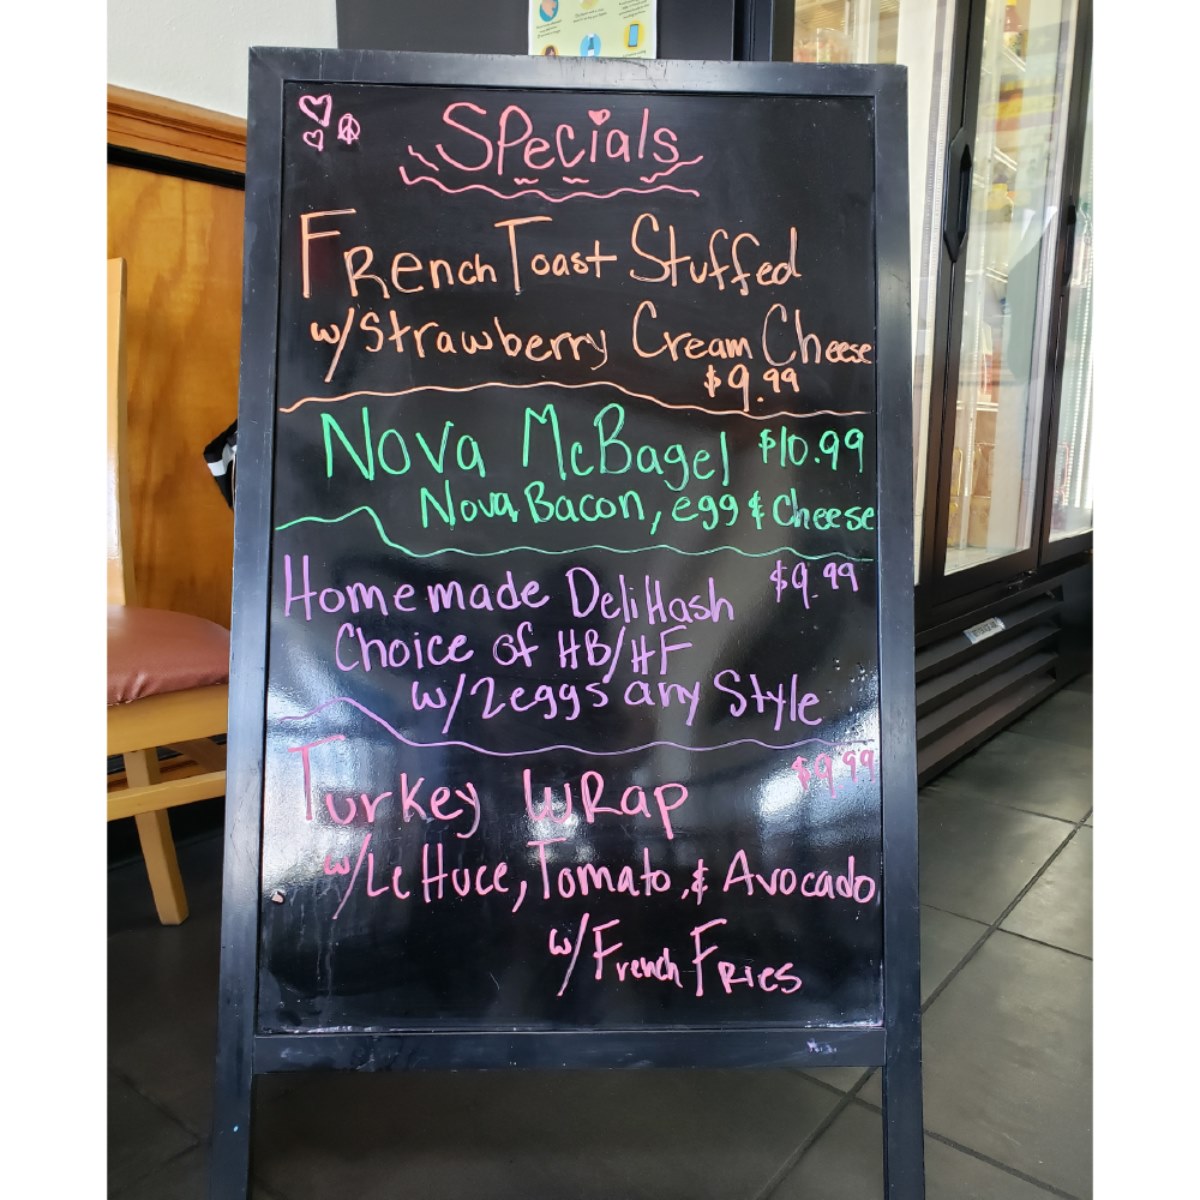 Specials
French Toast Stuffed
w/Strawberry Cream Cheese
$9.99
Nova McBagel $10.99
Nova, Bacon, egg & Cheese
Homemade Deli Hash $9.99
Choice of HB/HF
w/2 eggs any Style
Turkey Wrap $9.99
w/Lettuce, Tomato, & Avocado
w/French Fries